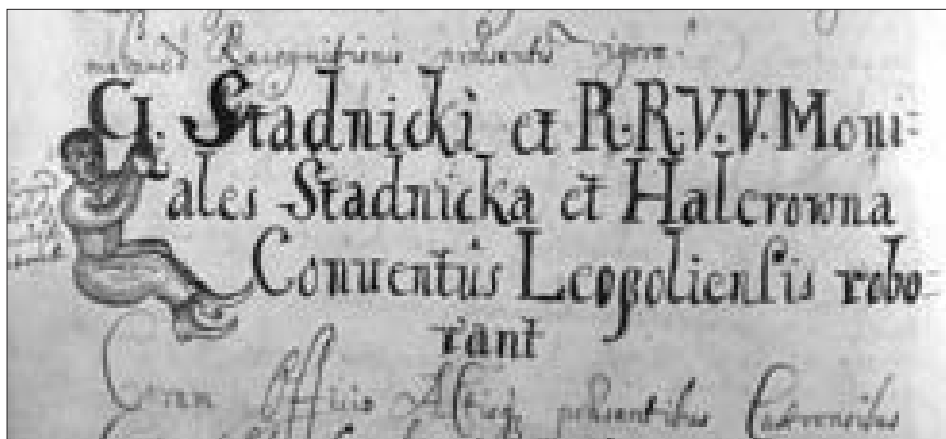 Recognitionis præsentis vigore.
G. Stadnicki et R.R.V.V. Moni=
ales Stadnicka et Halcrowna
Conuentus Leopoliensis robo=
rant
Coram Officio Actisq; præsentibus Castrensibus